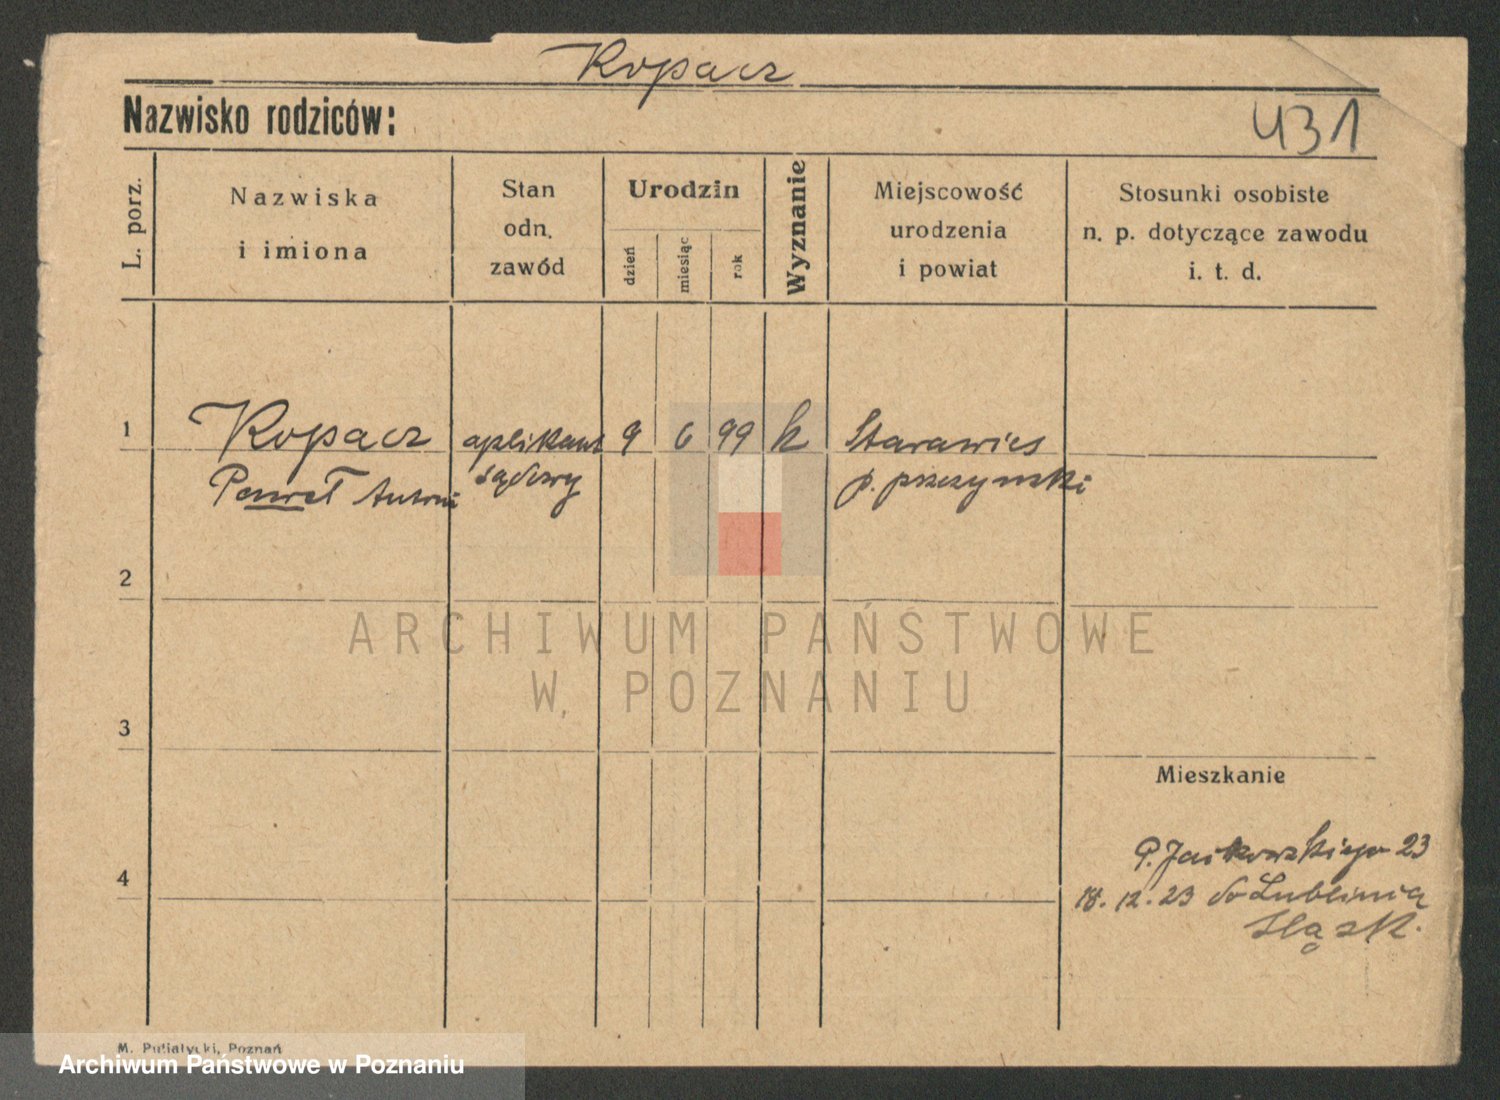 Kopacz
Nazwisko rodziców:
431
L. porz.
Nazwiska
i imiona
Stan
odn.
zawód
Urodzin
dzień
miesiąc
rok
Wyznanie
Miejscowość
urodzenia
i powiat
Stosunki osobiste
n. p. dotyczące zawodu
i. t. d.
1
Kopacz aplikant 9 6 99 k Starawieś
Paweł Antoni sądowy p. pszczyński
2
ARCHIWUM PAŃSTWOWE
W POZNANIU
3
Mieszkanie
P. Jackowskiego 23
4
18.12.23 do Lublinią
Śląsk.
M. Putiatycki, Poznań
Archiwum Państwowe w Poznaniu